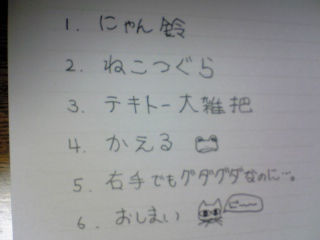 1. にゃん鈴
2. ねこつぐら
3. テキトー大雑把
4. かえる
5. 右手でもグダグダなのに…。
6. おしまい ピ〜〜